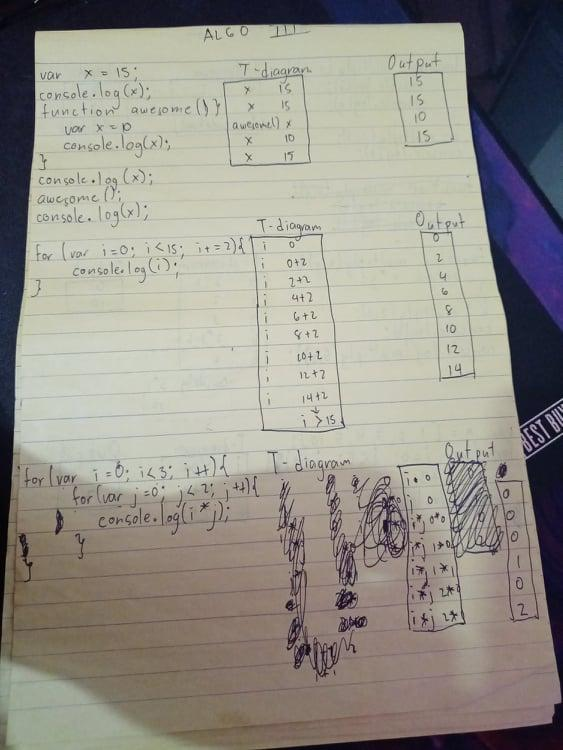 ALGO III
var x = 15;
console.log(x);
function awesome() }
var x = 10
console.log(x);
}
console.log(x);
awesome();
console.log(x);
T-diagram
x 15
x 15
awesome() x
x 10
x 15
Output
15
15
10
15
for (var i=0; i<15; i+=2){
console.log(i);
}
T-diagram
i 0
i 0+2
i 2+2
i 4+2
i 6+2
i 8+2
i 10+2
i 12+2
i 14+2
↓
i > 15
Output
0
2
4
6
8
10
12
14
for (var i=0; i<3; i++){
for (var j=0; j<2; j++){
console.log(i*j);
}
}
T-diagram
i 0
j 0
i*j 0*0
i*j 1*0
i*j 1*1
i*j 2*0
i*j 2*
Output
0
0
0
1
0
2
BEST BU